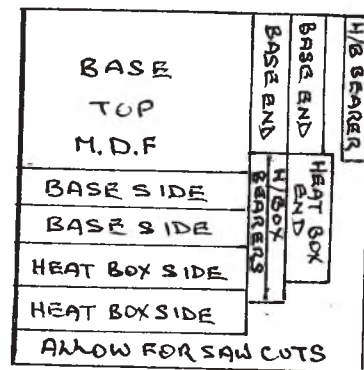 BASE
TOP
M.D.F
BASE SIDE
BASE SIDE
HEAT BOX SIDE
HEAT BOX SIDE
ALLOW FOR SAW CUTS
BASE END
BASE END
H/B BEARER
H/BOX
BEARERS
HEAT BOX
END